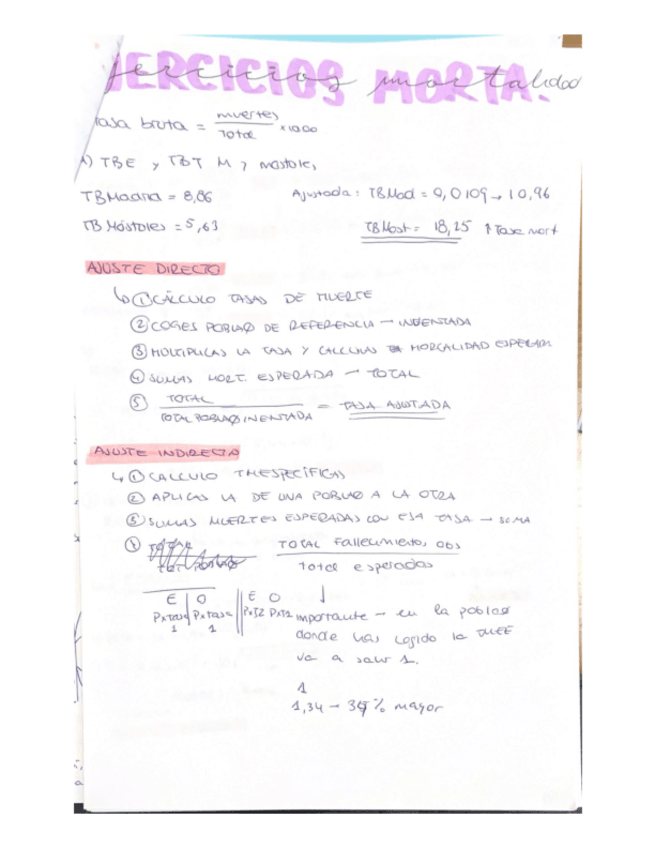 EJERCICIOS MORTA.
ejercicios mortalidad
Tasa bruta = muertes / Total x1000
A) TBE y TBT M y mostoles
TB Madrid = 8,86
Ajustada: TB Mad = 0,0109 → 10,96
TB Móstoles = 5,63
TB Most = 18,25 ↑ Tasa mort
AJUSTE DIRECTO
↳ ① CÁLCULO TASAS DE MUERTE
② COGES POBLAO DE REFERENCIA - INVENTADA
③ MULTIPLICAS LA TASA Y CALCULAS MORTALIDAD ESPERADA
④ SUMAS MORT. ESPERADA - TOTAL
⑤ TOTAL / TOTAL POBLAO INENTADA = TASA AJUSTADA
AJUSTE INDIRECTO
↳ ① CALCULO TM ESPECÍFICAS
② APLICAS LA DE UNA POBLAO A LA OTRA
③ SUMAS MUERTES ESPERADAS CON ESA TASA - SUMA
④ TOTAL Fallecimiento obs / Total esperadas
E | O || E O ↓
PxTasa 1 | PxTasa 1 || PxT2 PxT2
importante - en la poblao
donde has cogido la TMEE
va a salir 1.
1
1,34 - 34% mayor